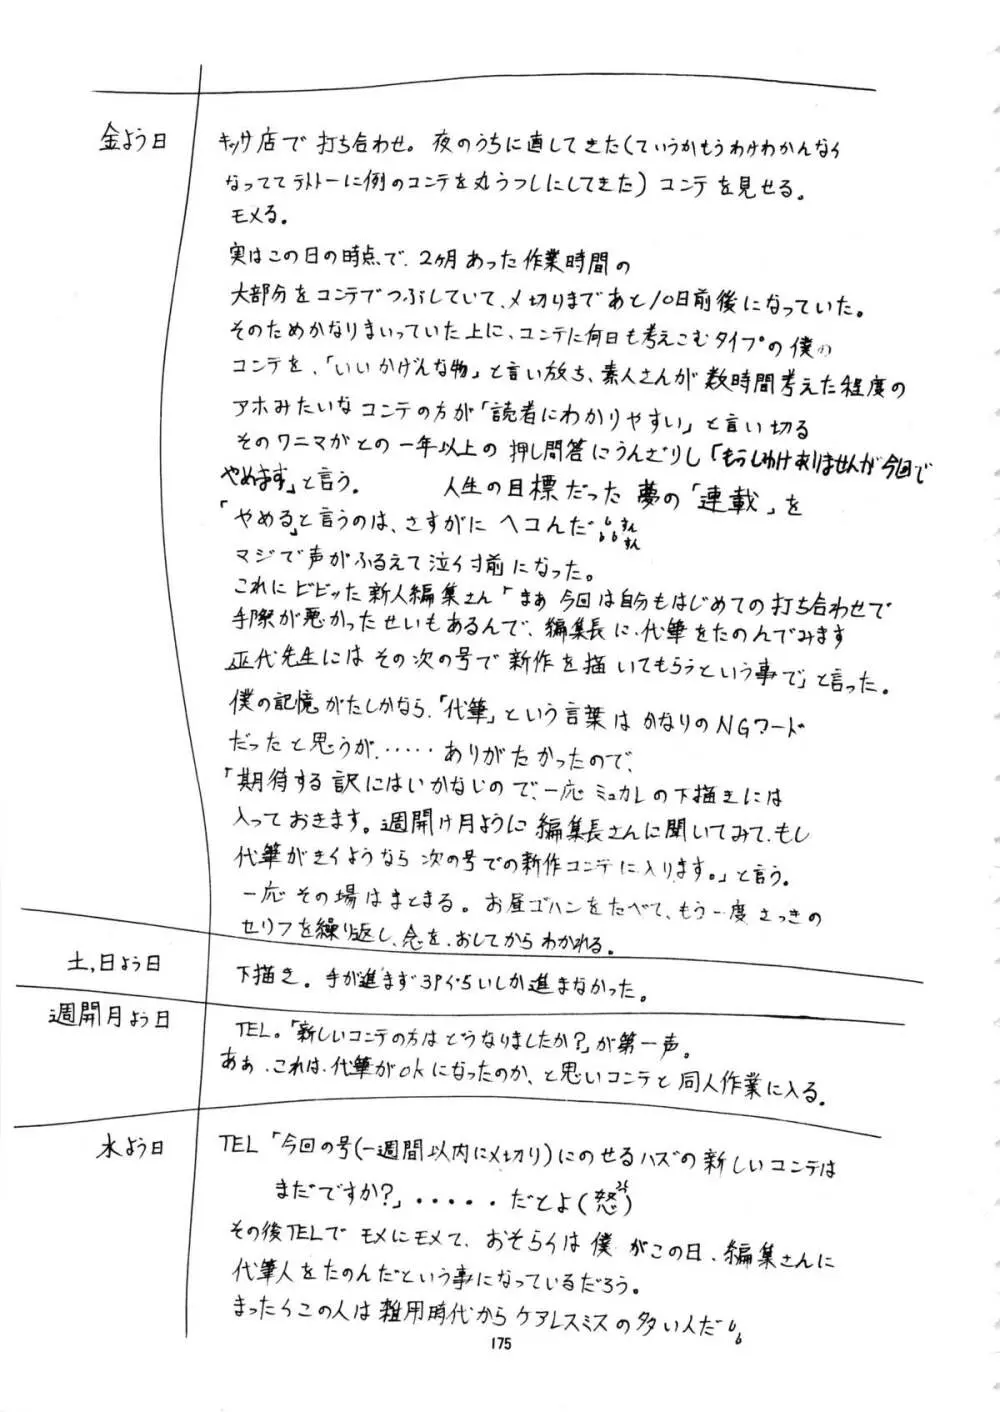 金よう日
キッサ店で 打ち合わせ。夜のうちに直してきた(ていうかもうわけわかんなく
なっててテキトーに例のコンテを丸うつしにしてきた) コンテを見せる。
モメる。
実はこの日の時点で、2ヶ月あった作業時間の
大部分をコンテでつぶしていて、〆切りまであと10日前後になっていた。
そのためかなりまいっていた上に、コンテに何日も考えこむタイプの僕の
コンテを、「いいかげんな物」と言い放ち、素人さんが数時間考えた程度の
アホみたいなコンテの方が「読者にわかりやすい」と言い切る
そのワニマガとの一年以上の押し問答にうんざりし「もうしわけありませんが今回で
やめます」と言う。 人生の目標だった夢の「連載」を
「やめる」と言うのは、さすがに ヘコんだ
マジで声がふるえて泣く寸前になった。
これにビビッた新人編集さん「まぁ今回は自分もはじめての打ち合わせで
手際が悪かったせいもあるんで、編集長に、代筆をたのんでみます
正代先生にはその次の号で新作を描いてもらうという事で」と言った。
僕の記憶がたしかなら、「代筆」という言葉はかなりのNGワード
だったと思うが、・・・・・ありがたかったので、
「期待する訳にはいかないので、一応ミュカレの下描きには
入っておきます。週開け月ように編集長さんに聞いてみて、もし
代筆がきくようなら次の号での新作コンテに入ります。」と言う。
一応その場はまとまる。お昼ゴハンをたべて、もう一度さっきの
セリフを繰り返し、念を、おしてからわかれる。
土,日よう日
下描き。手が進まず3Pぐらいしか進まなかった。
週開月よう日
TEL。「新しいコンテの方はどうなりましたか?」が第一声。
ああ、これは、代筆がokになったのか、と思いコンテと同人作業に入る。
水よう日
TEL「今回の号(一週間以内に〆切り)にのせるハズの新しいコンテは
まだですか?」・・・・・だとよ(怒)
その後TELで モメにモメて、おそらくは僕がこの日、編集さんに
代筆人をたのんだという事になっているだろう。
まったくこの人は雑用時代からケアレスミスの多い人だ
175